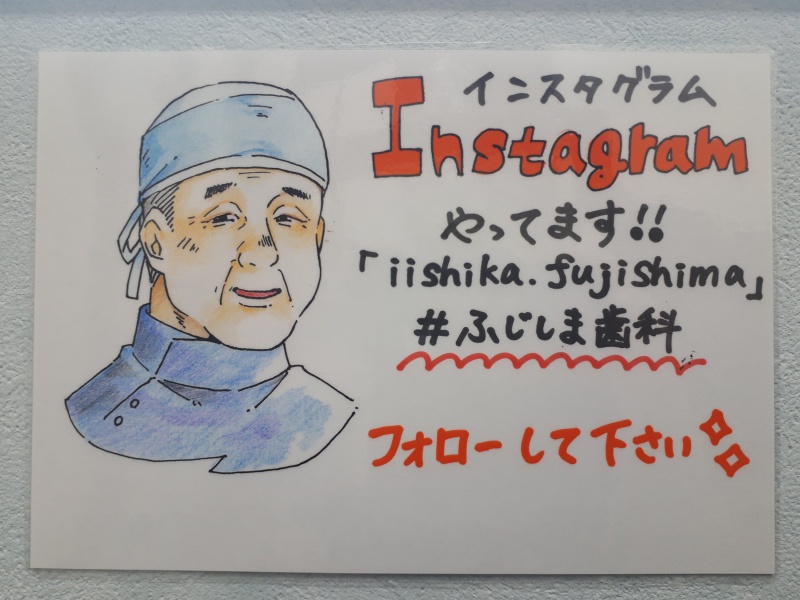 インスタグラム
Instagram
やってます!!
「iishika.fujishima」
#ふじしま歯科
フォローして下さい